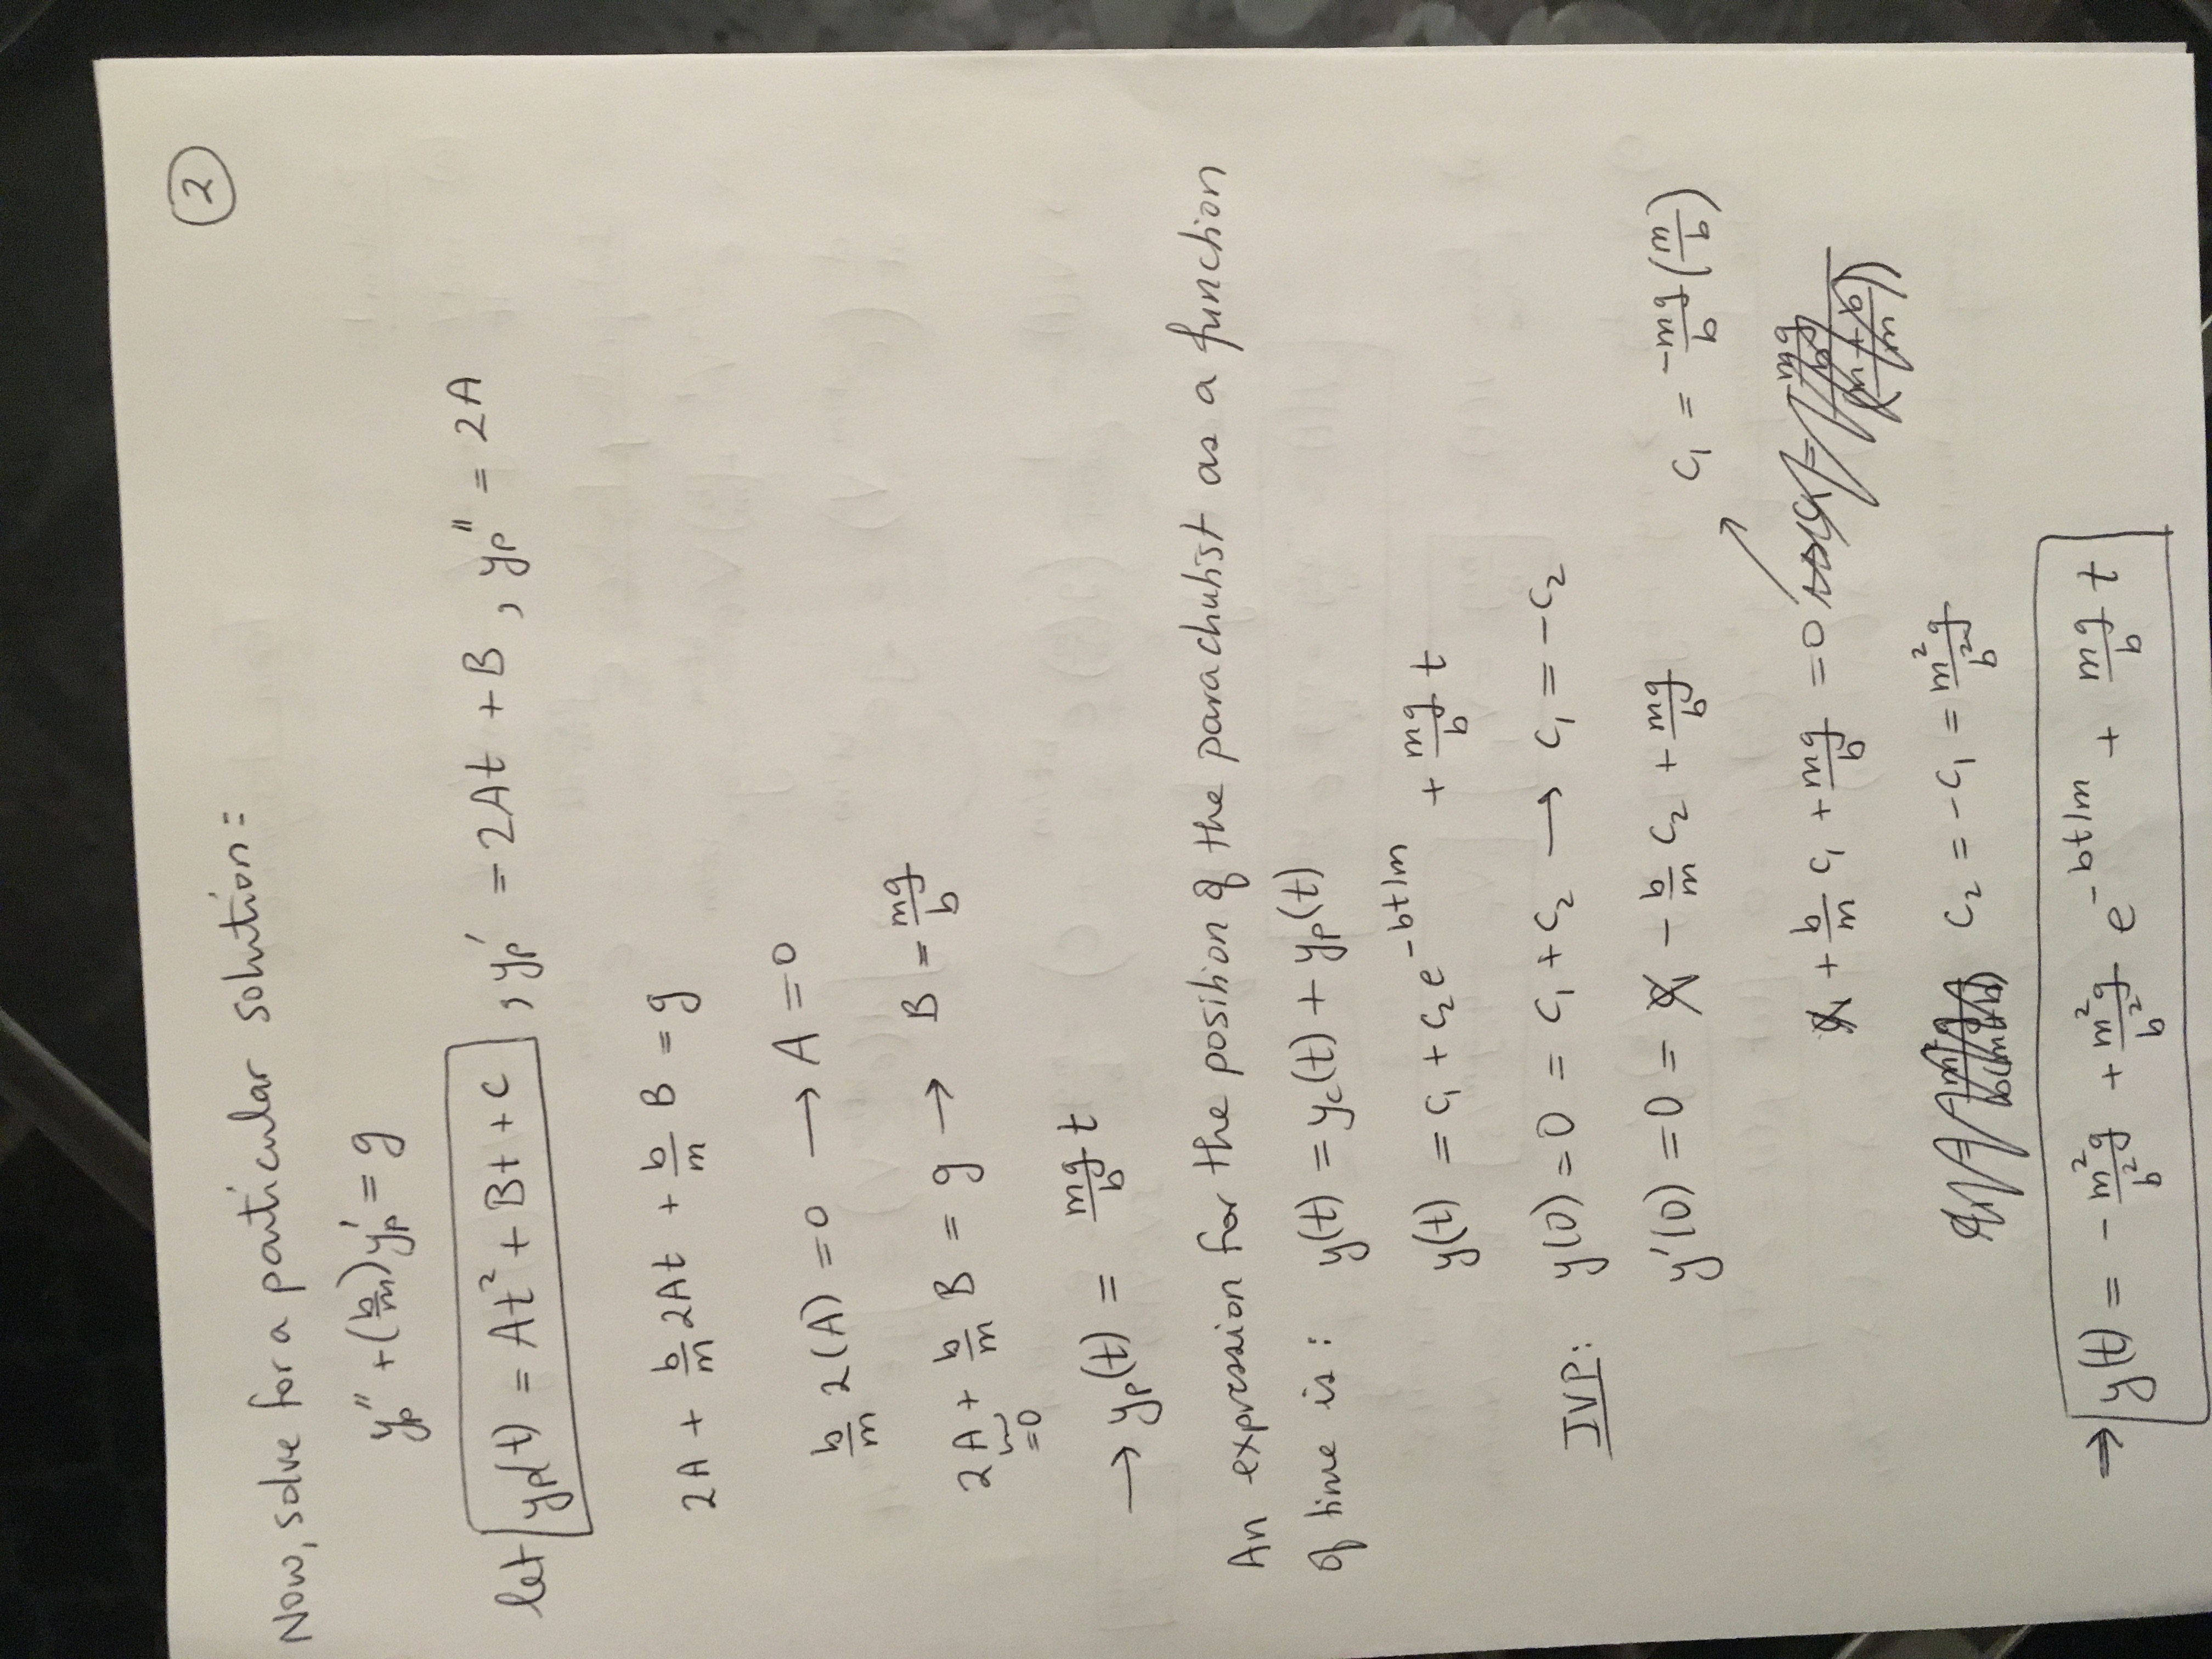 2
Now, solve for a particular solution:
yp'' + (b/m) yp' = g
let yp(t) = At² + Bt + C , yp' = 2At + B , yp'' = 2A
2A + b/m 2At + b/m B = g
b/m 2(A) = 0 → A = 0
2A + b/m B = g → B = mg/b
=0
→ yp(t) = mg/b t
An expression for the position of the parachutist as a function
of time is: y(t) = yc(t) + yp(t)
y(t) = c₁ + c₂e^-bt/m + mg/b t
IVP: y(0) = 0 = c₁ + c₂ → c₁ = -c₂
y'(0) = 0 = - b/m c₂ + mg/b
c₁ = -mg/b (m/b)
+ b/m c₁ + mg/b = 0
c₂ = -c₁ = m²g/b²
⇒ y(t) = - m²g/b² + m²g/b² e^-bt/m + mg/b t